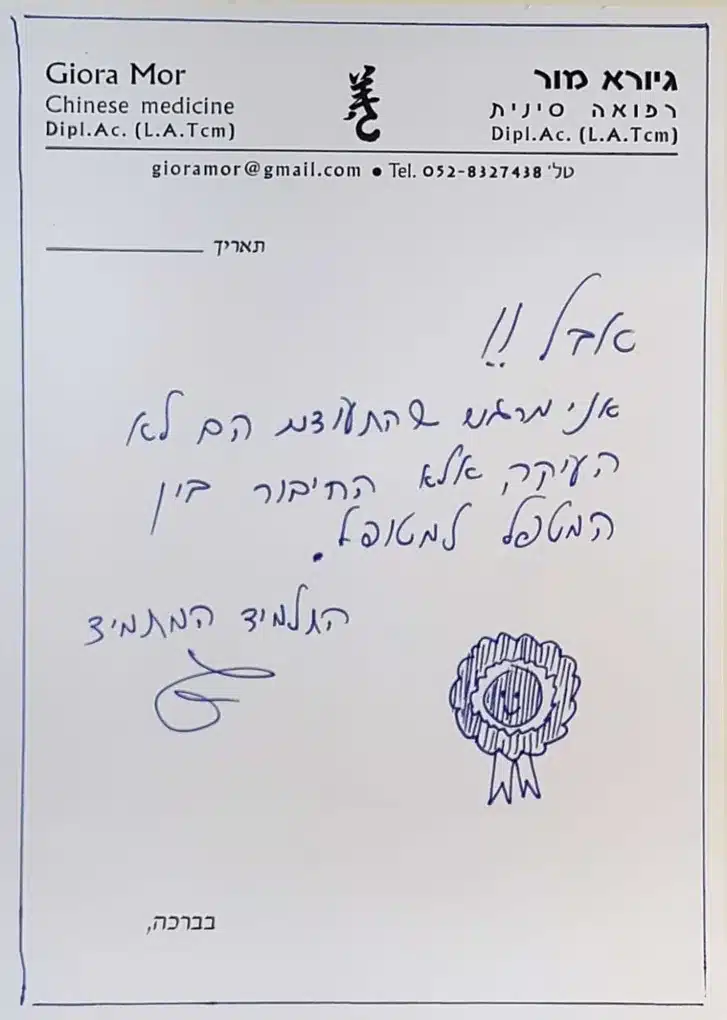 Giora Mor
Chinese medicine
Dipl.Ac. (L.A.Tcm)
גיורא מור
רפואה סינית
Dipl.Ac. (L.A.Tcm)
gioramor@gmail.com • Tel. 052-8327438 טל'
תאריך
אבל !!
אני מרגש שהתעודות הם לא
העיקר אלא החיבור בין
המטפל למטופל.
התלמיד המתמיד
בברכה,